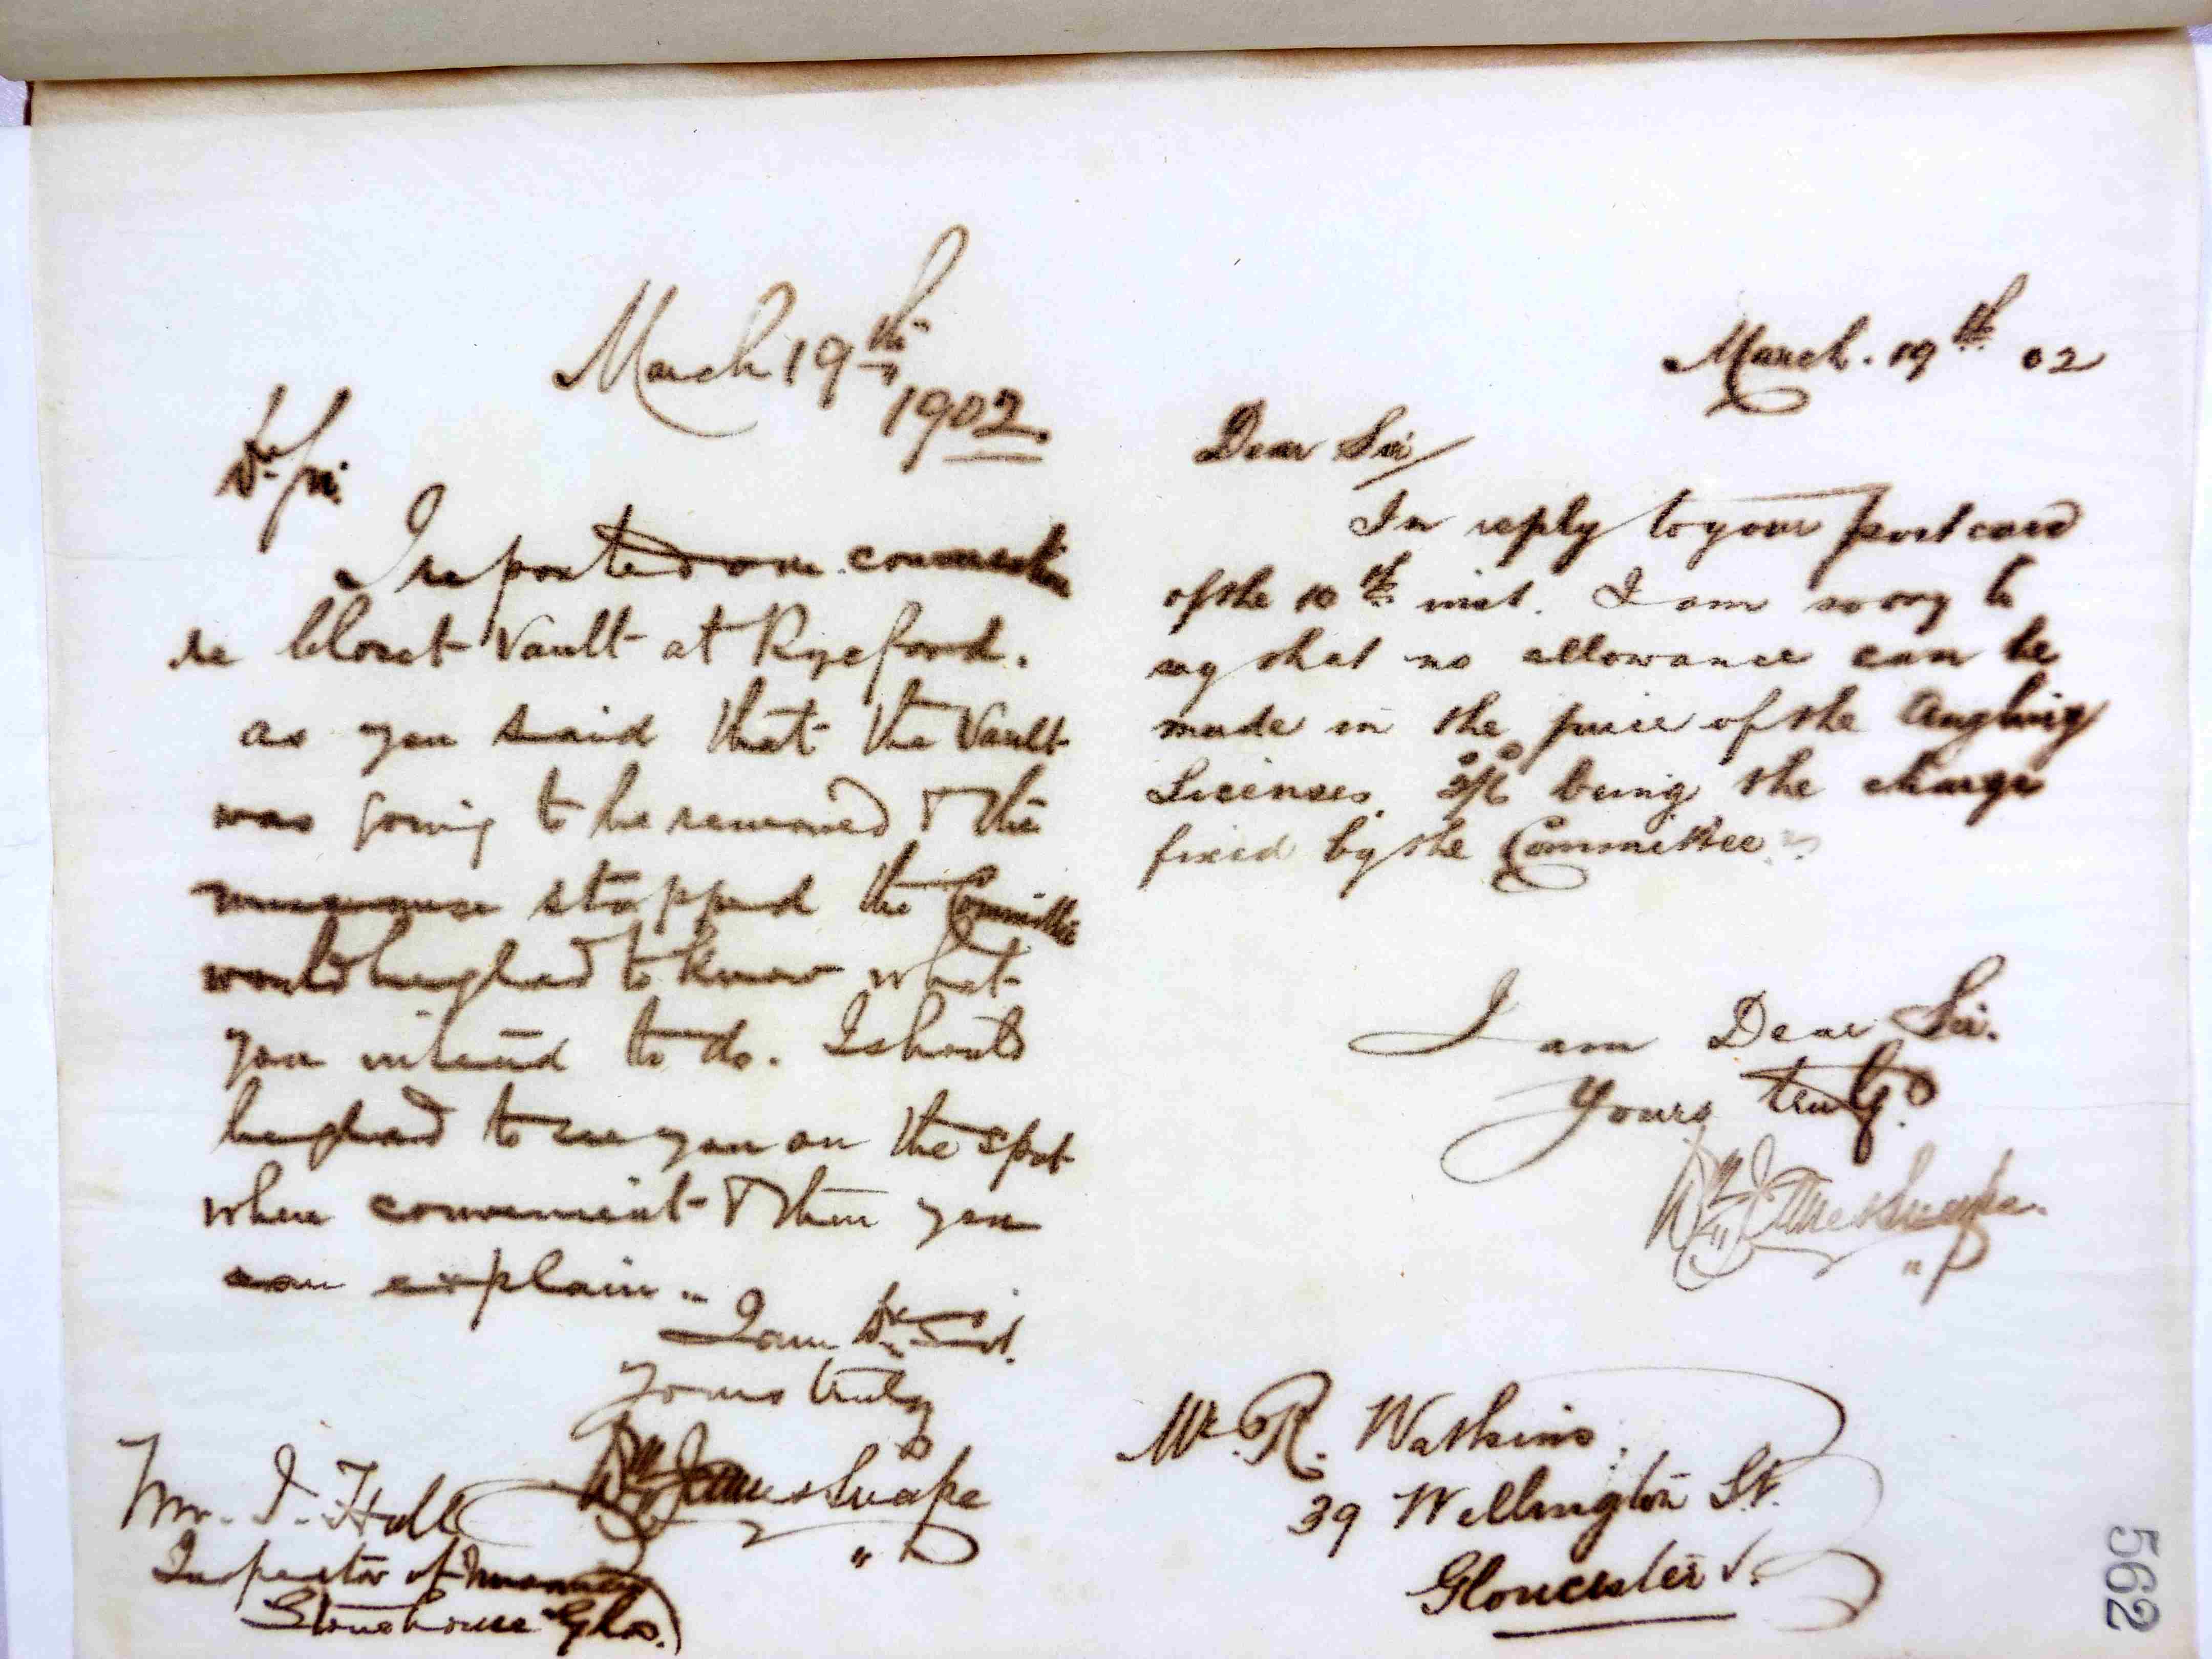 March 19th
1902.
Dr Sir.
I reported our connection
re Closet Vault at Ryeford.
as you said that the Vault
was going to be removed & the
nuisance stopped the Committee
would be glad to know what
you intend to do. I should
be glad to see you on the spot
when convenient & then you
can explain.
I am Dr Sir.
Yours truly
Wm James Snape
Mr. I. Hall
Inspector of Nuisances
Stonehouse Glos.
March. 19th 02
Dear Sir/
In reply to your postcard
of the 10th inst. I am sorry to
say that no allowance can be
made in the price of the Angling
Licenses. being the charge
fixed by the Committee
I am Dear Sir.
Yours truly.
Wm James Snape.
Mr. R. Watkins.
39 Wellington St.
Gloucester.
562